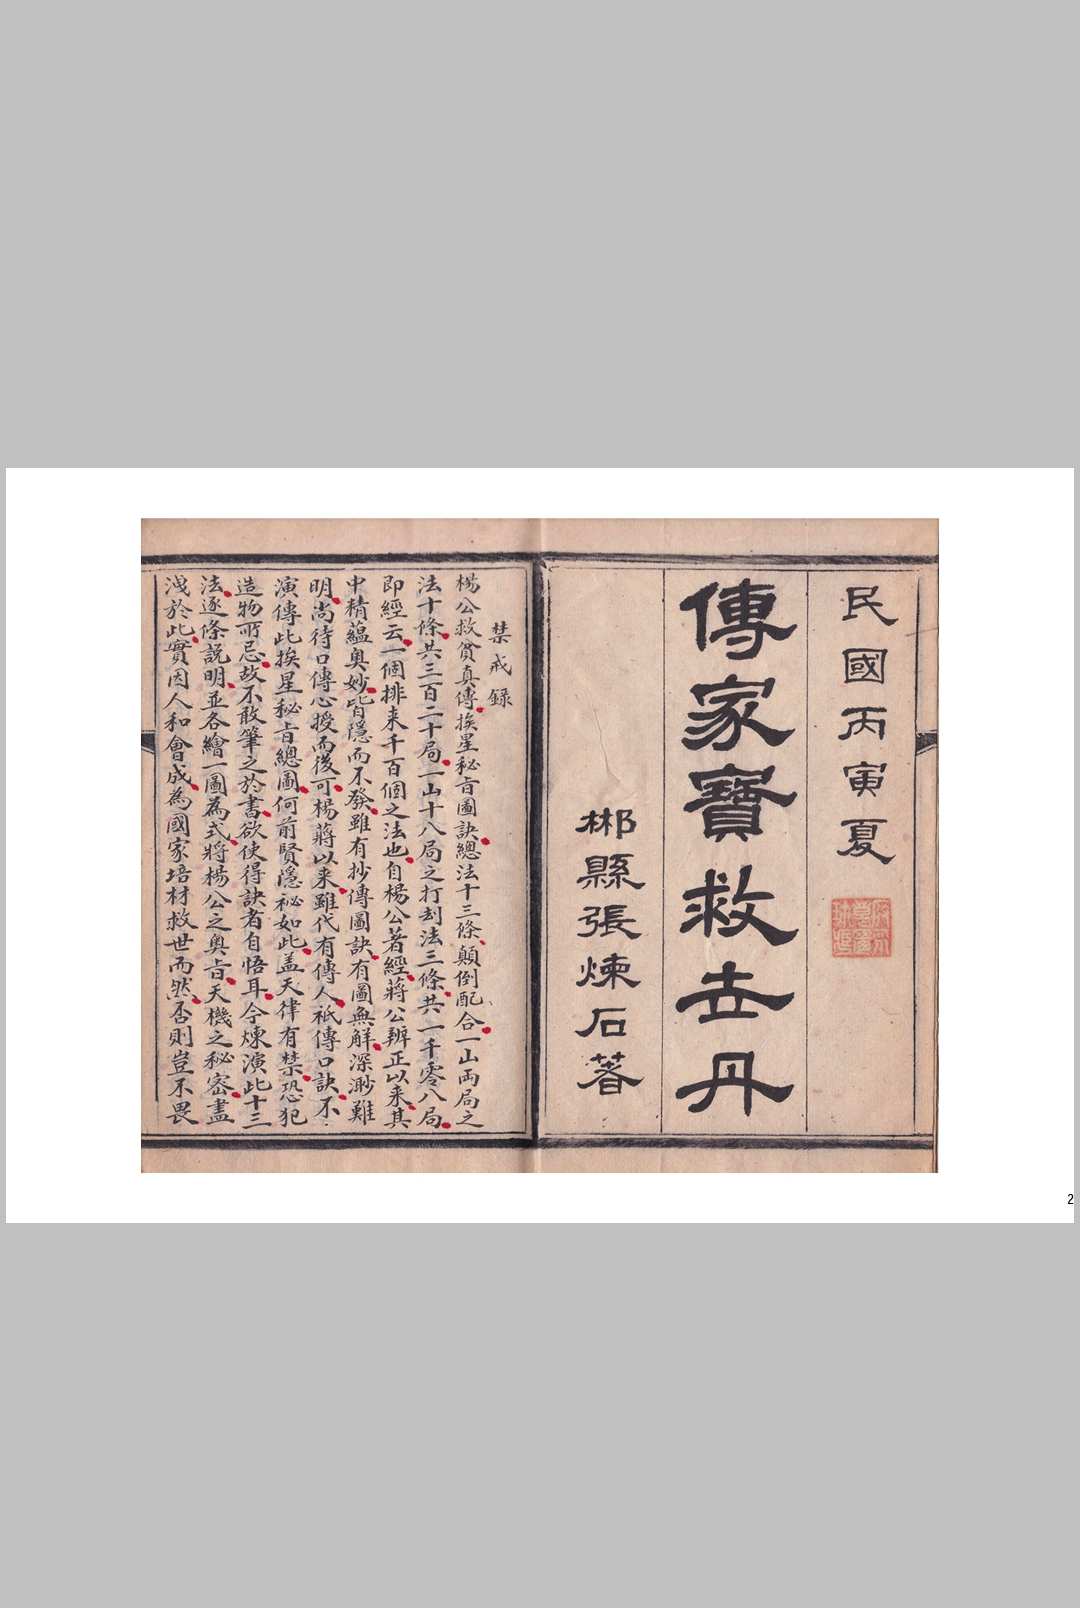 民國丙寅夏
傳家寶救世丹
郴縣張煉石著
禁戒錄
楊公救貧真傳挨星秘旨圖訣總法十三條顛倒配合一山兩局之
法十條共三百二十局一山十八局之打刦法三條共一千零八局
即經云一個排来千百個之法也自楊公著經蔣公辨正以来其
中精蘊奥妙皆隱而不發雖有抄傳圖訣有圖無解深渺難
明尚待口傳心授而後可楊蔣以来雖代有傳人祇傳口訣不
演傳此挨星秘旨總圖何前賢隱祕如此盖天律有禁恐犯
造物所忌故不敢筆之於書欲使得訣者自悟耳今煉演此十三
法逐條說明並各繪一圖為式將楊公之奥旨天機之秘密盡
洩於此實因人和會成為國家培材救世而然否則豈不畏
2